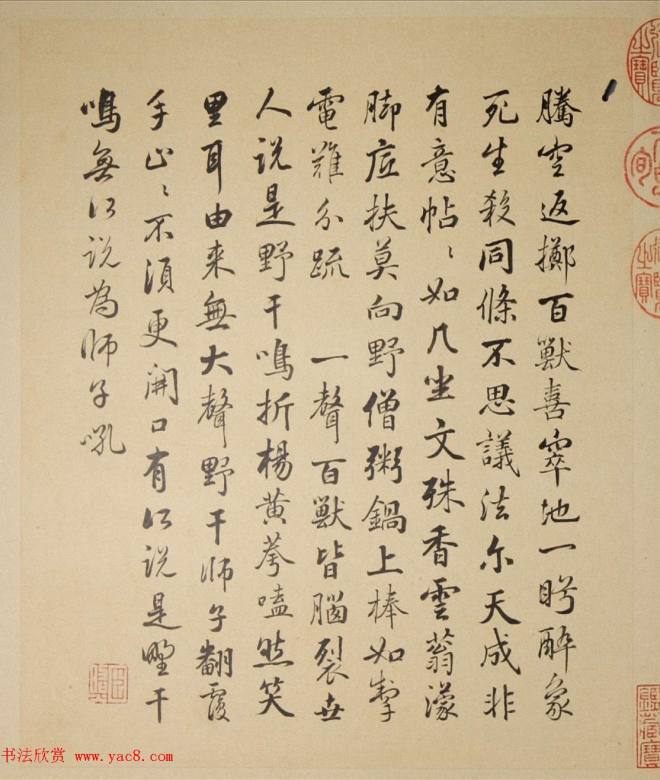 騰空返擲百獸喜窣地一盻醉象
死生殺同條不思議法尒天成非
有意帖〻如几坐文殊香雲蓊濛
脚底扶莫向野僧粥鍋上棒如掣
電難分疏 一聲百獸皆腦裂世
人說是野干鳴折楊黄荂嗑然笑
里耳由來無大聲野干師子翻覆
手止〻不須更開口有所說是野干
鳴無所說為師子吼
书法欣赏 www.yac8.com